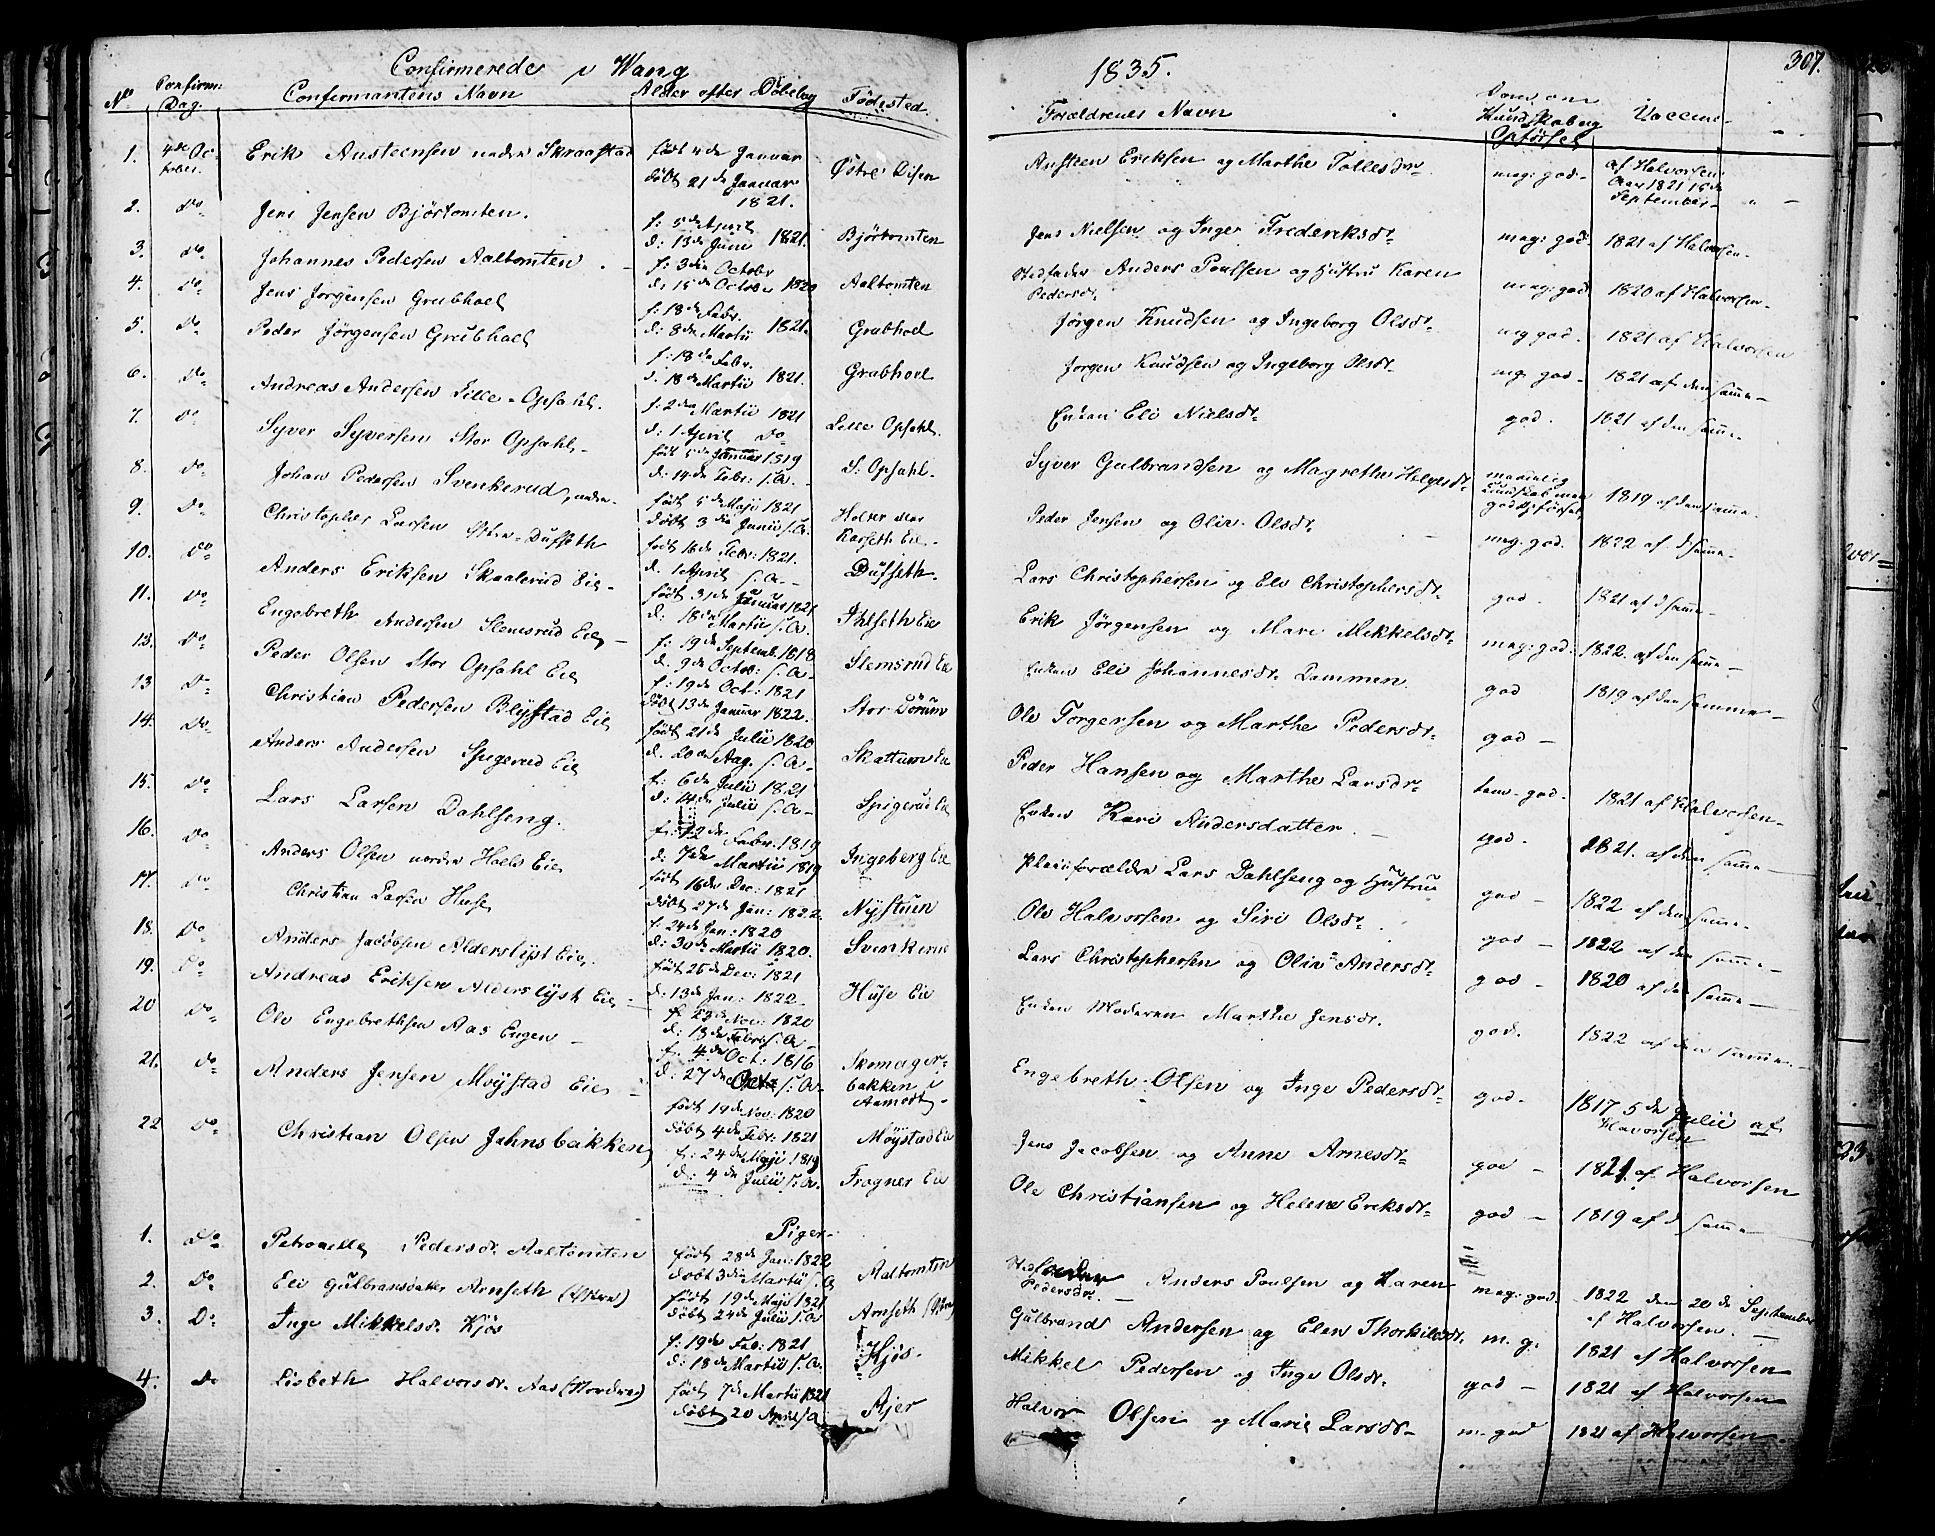 Confirmerede i Wang
1835.
307.
No Confirm: Dag. Confirmantens Navn Alder efter Døbebog Fødested.
Forældrenes Navn Dom om Kundskab og Opførsel Vaccine
1. 4de October Erik Austeensen nedre Skraastad født 4de Januar døbt 21de Januar 1821. Østre Disen Austeen Eriksen og Marthe Tollesdr meg: god. af Halvorsen Aar 1821 15de September
2. Do Jens Jensen Bjørtomten. f: 5de April d: 13de Juni 1821. Bjørtomten Jens Nielsen og Inger Frederiksdr meg: god. 1821 af Halvorsen
3. Do Johannes Pedersen Aaltomten f: 3die Octobr d: 15de October 1820 Aaltomten Stedfader Anders Poulsen og Hustru Karen Pedersdr meg: god 1820 af Halvorsen
4. Do Jens Jørgensen Grubhoel f: 18de Febr. d: 8de Martii 1821. Grubhoel Jørgen Knudsen og Ingeborg Olsdr meg god. 1821 af Halvorsen
5. Do Peder Jørgensen Grubhoel f: 18de Febr. d. 18de Martii 1821. Grubhoel Jørgen Knudsen og Ingeborg Olsdr meg. god 1821 af den samme
6. Do Andreas Andersen Lille-Opsahl. f: 2den Martii 1821 d: 1 April Do Lille Opsahl. Enken Eli Nielsdr god. 1821 af den samme
7. Do Syver Syversen Stor Opsahl født 5de Januar 1819 d: 14de Febr: s. A. S: Opsahl. Syver Gulbrandsen og Magrethe Helgesdr maadelig Kundskab men god Opførsel 1819 af den samme
8. Do Johan Pedersen Svenkerud, nedre født 5de Maji 1821 døbt 3die Junii s. A. Holter Korseth Eie Peder Jensen og Olia Olsdr meg. god. 1822 af d samme
9. Do Christopher Larsen Østre-Dufseth født 16de Febr: 1821. d. 1 April s. A. Dufseth. Lars Christophersen og Eli Christophersdr god. 1821 af d samme
10. Do Anders Eriksen Skaalerud Eie født 31de Januar 1821 d: 18de Martii s. A. Ihlseth Eie Erik Jørgensen og Mari Mikkelsdr meg: god. 1822 af den samme
11. Do Engebreth Andersen Slemsrud Eie f: 19de Septemb: 1818 d. 9de Octob: s. A. Slemsrud Eie Enken Eli Johannesdr Dammen. god 1819 af den samme
12. Do Peder Olsen Stor Opsahl Eie f: 19de Oct: 1821 døbt 13de Januar 1822. Stor Dørum Ole Torgersen og Marthe Pedersdr god
13 Do Christian Pedersen Blystad Eie født 21de Julii 1820 d. 20de Aug. s. A. Skattum Eie Peder Hansen og Marthe Larsdr tem. god. 1821 af Halvorsen
14. Do Anders Andersen Spigerud Eie f: 6de Julii 1821 d: 14de Julii s. A. Spigerud Eie Enken Kari Andersdatter god. 1821. af den samme
15. Do Lars Larsen Dahlseng. f: 12de Febr: 1819 d: 7de Martii 1819 Ingeberg Eie Pleieforældre Lars Dahlseng og Hustru god 1822 af den samme
16. Do Anders Olsen nordre Hoels Eie født 16de Dec: 1821 døbt 27de Jan: 1822. Nystuen Ole Halvorsen og Siri Olsdr god 1822 af den samme
17. Do Christian Larsen Huse f: 24de Jan: 1820 d: 30de Martii 1820. Svenkerud Lars Christophersen og Olia Andersdr god 1820 af den samme
18. Do Anders Jacobsen Alderslyst Eie født 26de Dec: 1821 d: 13de Jan: 1822. Huse Eie Enken Moderen Marthe Jensdr. god. 1822 af den samme
19. Do Andreas Eriksen Alderslyst Eie f. 23de Nov: 1820 d: 18de Febr: s. A
20 Do Ole Engebrethsen Aas Engen f. 4de Oct: 1816 d: 27de Octr s. A. Skomagerbakken i Aamodt Engebreth Olsen og Inge Pedersdr god. 1817 5de Julii af Halvorsen
21. Do Anders Jensen Møystad Eie født 19de Nov: 1820 døbt 4de Febr: 1821 Møystad Eie Jens Jacobsen og Anne Arnesdr god 1821 af Halvorsen
22 Do Christian Olsen Jahnsbakken f: 24de Maji 1819 d: 4de Julii s: A. Frogner Eie Ole Christiansen og Helene Eriksdr god 1819 af d samme
Piger
1. Do Petronelle Pedersdr Aaltomten født 28de Jan: 1822 døbt 3die Martii s. A Aaltomten Stedfader Anders Poulsen og Karen Pedersdr. meg: god. 1822 den 20de September af Halvorsen.
2. Do Eli Gulbransdatter Arnseth (Østre) født 19de Maji 1821 døbt 24de Julii s. A Arnseth (Østre) Gulbrand Andersen og Elen Thorkildsdr. m. g. 1821 af Halvorsen
3. Do Inge Mikkelsdr Kjøs f: 19de Feb: 1821 d: 18de Martii s. A. Kjøs. Mikkel Pedersen og Inge Olsdr. god 1821 af Halvorsen
4. Do Lisbeth Halvorsdr. Aas (Nordre) født 7de Martii 1821 døbt 20 April s A Ajer Halvor Olsen og Marie Larsdr m. god 1821 af Halvorsen